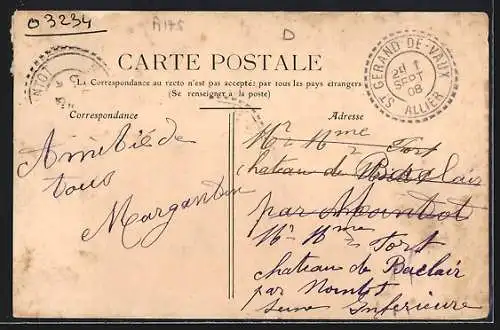 O 3234
A175
D
CARTE POSTALE
La Correspondance au recto n'est pas acceptée par tous les pays étrangers
(Se renseigner à la poste)
Correspondance
Adresse
ST GERAND-DE-VAUX
1
SEPT
08
ALLIER
NIOT
Amitié de
tous
Margantin
Mr Mme Fort
chateau de Baclair
par Nointot
Mr Mme Fort
chateau de Baclair
par Nointot
Seine Inferieure